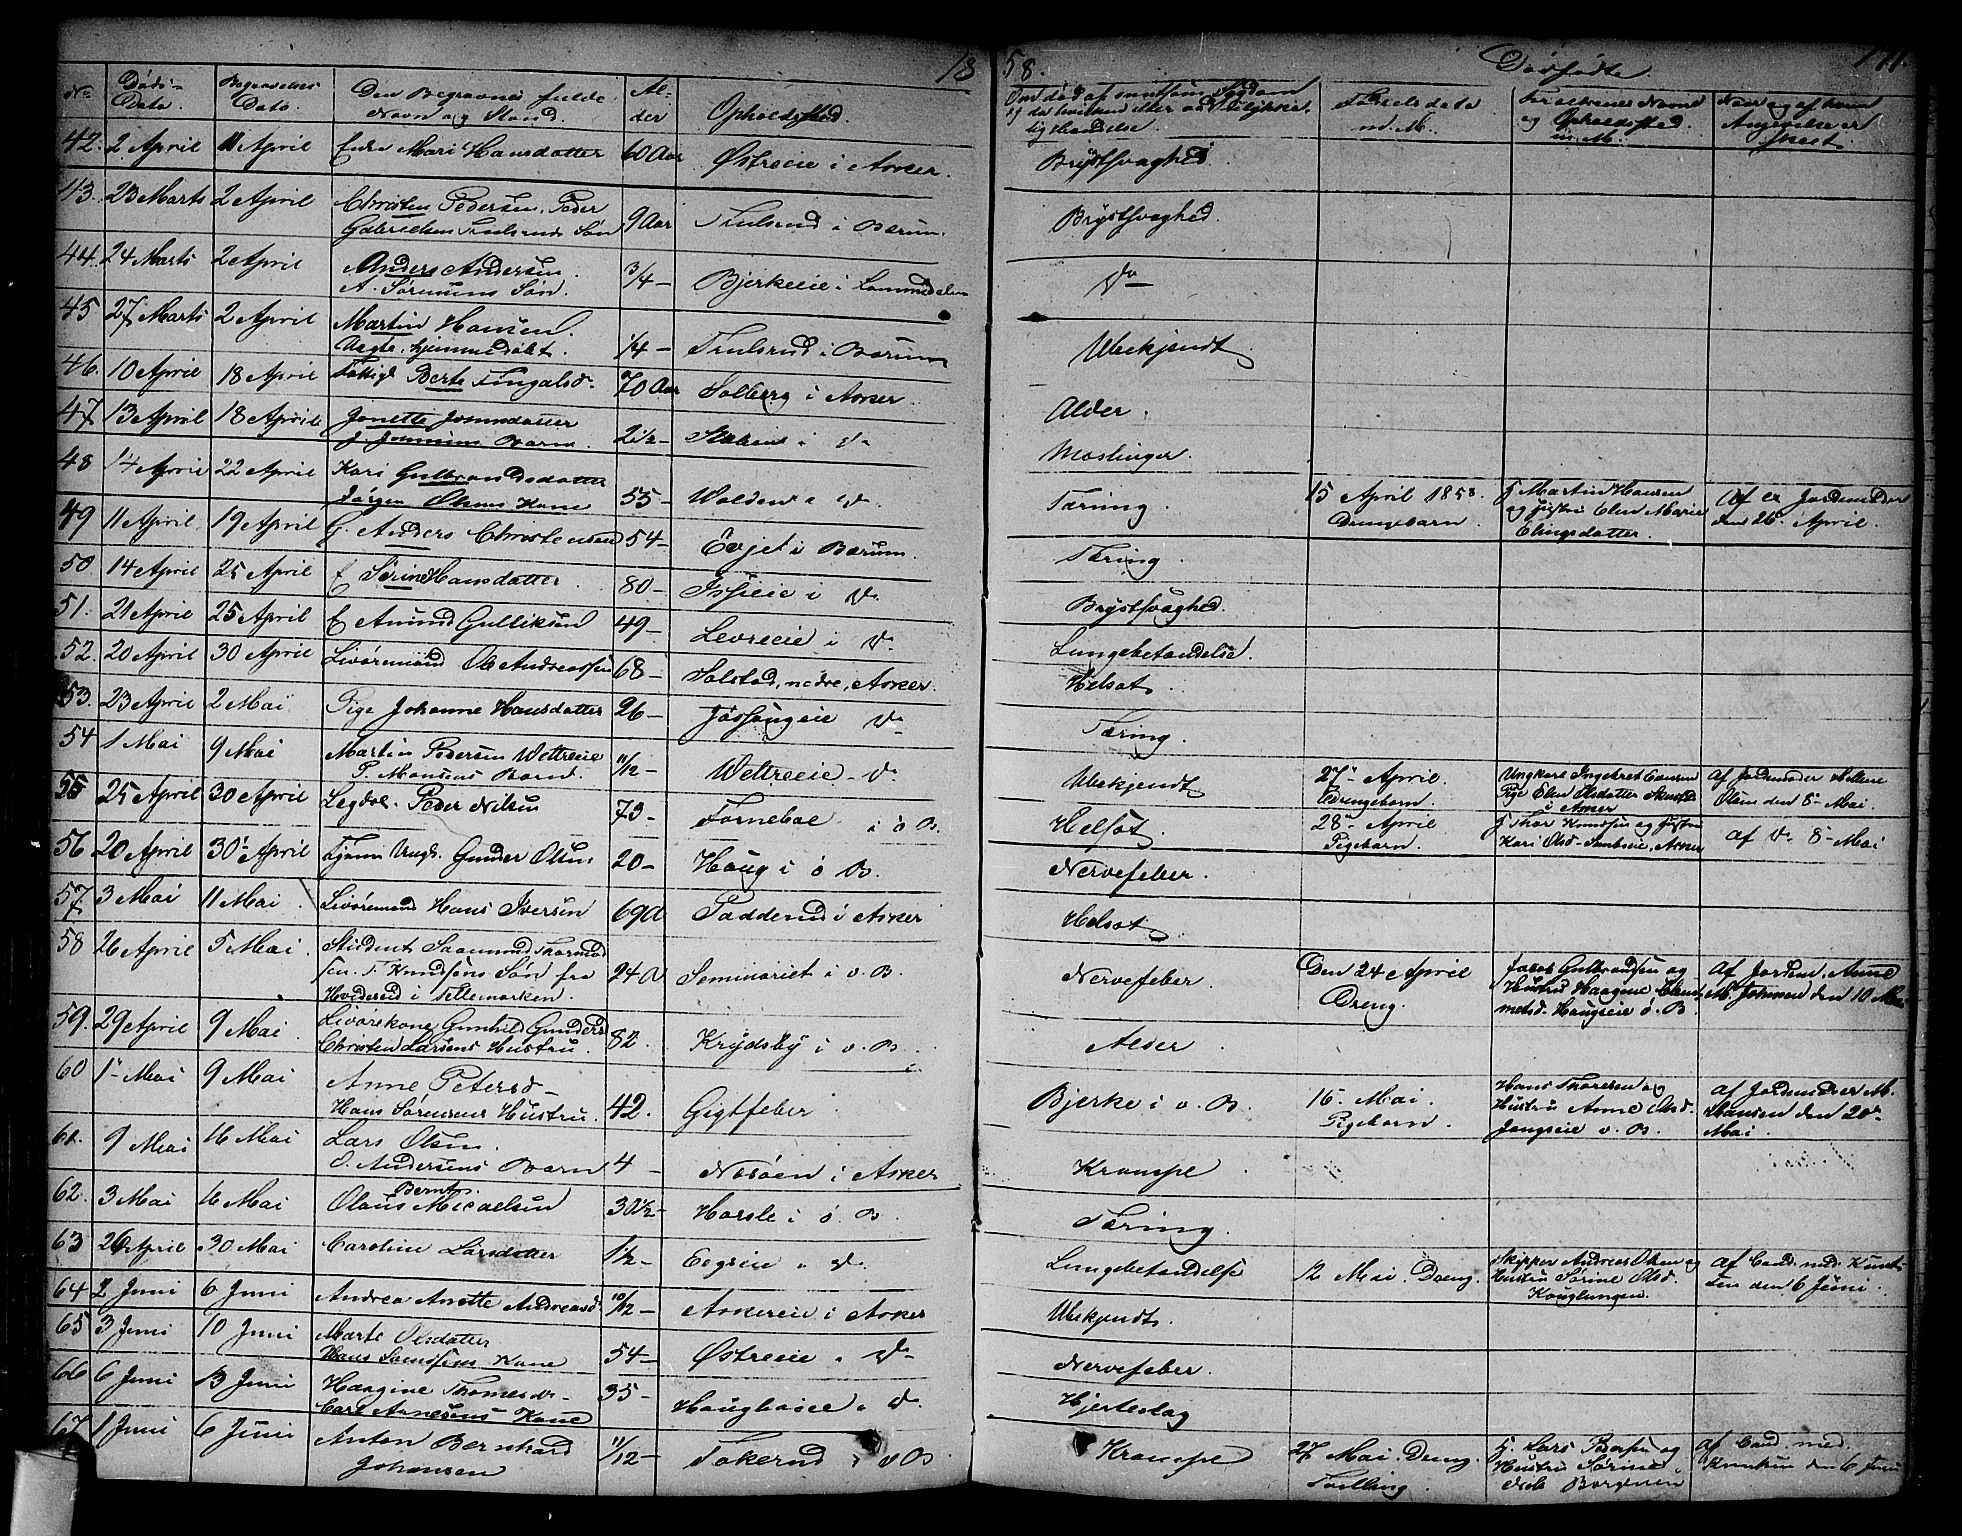 18
58.
Dødfødte.
171.
No
Døds-
Dato.
Begravelses
Dato.
Den Begravne fulde
Navn og Stand.
Al-
der
Opholdssted.
og
Opholdssted
Angivelse er
skeet.
42. 2 April 11 April Mari Hansdatter 60 Aar Østreeie i Asker. Brystsvaghed
43. 23 Marts 2 April Christen Pedersen, Peder
Gabrielsen Søn 9 Aar i Bærum. Brystsvaghed.
44. 24 Marts 2 April Anders Andersen.
A. Sørensens Søn. 3/4 - Bjerkeeie i Lommedalen Do
45 27 Marts 2 April Martin Hansen.
Ægte, hjemmedøbt. 1/4 - i Bærum Ubekjendt.
46. 10 April 18 April Berte 70 Aar Solberg i Asker. Alder.
47 13 April 18 April Jonette Jonsdatter
J. Barn. 2 1/2 - i Do Mæslinger.
48 14 April 22 April Kari Gulbrandsdatter
Jørgen Olsens Kone 55 - Do. Tæring.
15 April 1858.
Drengebarn.
Martin Hansen
og Hustru Elen Marie
Elingsdatter.
Af Jordemoder
den 26. April.
49 11 April 19 April G. Anders Christensen 54 - Evjet i Bærum. Tæring.
50 14 April 25 April Hansdatter. 80 - i Do. Brystsvaghed.
51. 21 April 25 April F. Amund Gulliksen 49 - Levreeie i Do. Lungebetændelse.
52. 20 April 30 April Livøremand Ole Andreassen 68 - Solstad, nedre, Asker. Helsot.
53. 23 April 2 Mai Pige Johanne Hansdatter 26 - Do Tæring.
54 1 Mai 9 Mai Martin Pedersen Wettreeie
P. Monsens Barn. 11/12 - Wettreeie - Do. Ubekjendt.
27 April.
Drengebarn.
Ungkarl Ingebret Hansen
Pige Elen Olsdatter
i Asker
Af Jordemoder Helene
Olsen den 8 Mai.
55 25 April 30 April Legdsl. Peder Nilsen 73 - Forneboe i ø B. Helsot.
28 April
Pigebarn.
Thor Knudsen og Hustru
Kari Olsd. Asker
af Do. 8 - Mai
56 20 April 30 April Gunder Olsen 20 - Haug i ø B. Nervefeber.
57. 3 Mai 11 Mai. Livøremand Hans Iversen 69 A Tadderud i Asker Helsot.
58 26 April 5 Mai. Student Saamund Thormod
sen. T. Knudsens Søn fra
Hvideseid i Tellemarken. 24 A Seminariet i v. B. Nervefeber.
Den 24 April
Dreng.
Jacob Gulbrandsen og
Hustru Haagine Clem-
metsd. Haugseie ø. B.
Af Jordem. Anne
M. Johnsen den 10 Mai
59. 29 April 9 Mai. Livørekone Gunhild Gunders
Christen Larsens Hustru. 82. Krydsby i v. B. Alder
60 1 Mai 9 Mai Anne Petersd
Hans Sørensens Hustru. 42. Gigtfeber Bjerke i v. B.
16. Mai.
Pigebarn.
Hans Thoresen og
Hustru Anne Olsd.
v. B.
Af Jordemoder M.
Hansen den 20
Mai.
61. 9 Mai 16 Mai Lars Olsen.
O. Andersens Barn 4 - Nesøen i Asker Krampe
62. 3 Mai 16 Mai Bernt
Olaus Micaelsen 30 1/2 - Harsle i ø. B. Tæring.
63 26 April 30 Mai Caroline Larsdatter 1 1/2 - Eegseie Do. Lungebetændelse
12 Mai. Dreng.
Skipper Andreas Olsen og
Hustru Sørine Olsd.
Konglungen.
Af Cand. med. Knut-
zen den 6 Juni.
64 2 Juni 6 Juni Andrea Anette Andreasd 10/12 - Askereie i Asker Ubekjendt.
65 3 Juni 10 Juni Marte Olsdatter
Hans Kone 54 - Østreeie Do Nervefeber
66 6 Juni 13 Juni Haagine Thomesdr.
Carl Arnesens Kone 35 - Do. Hjerteslag
67. 1 Juni 6 Juni Anton Bernhard
Johansen 11/12 - Tokerud v B. Krampe
27 Mai. Dreng.
Tvilling.
Lars Pedersen og
Hustru Sørine
af Cand. med.
den 6 Juni